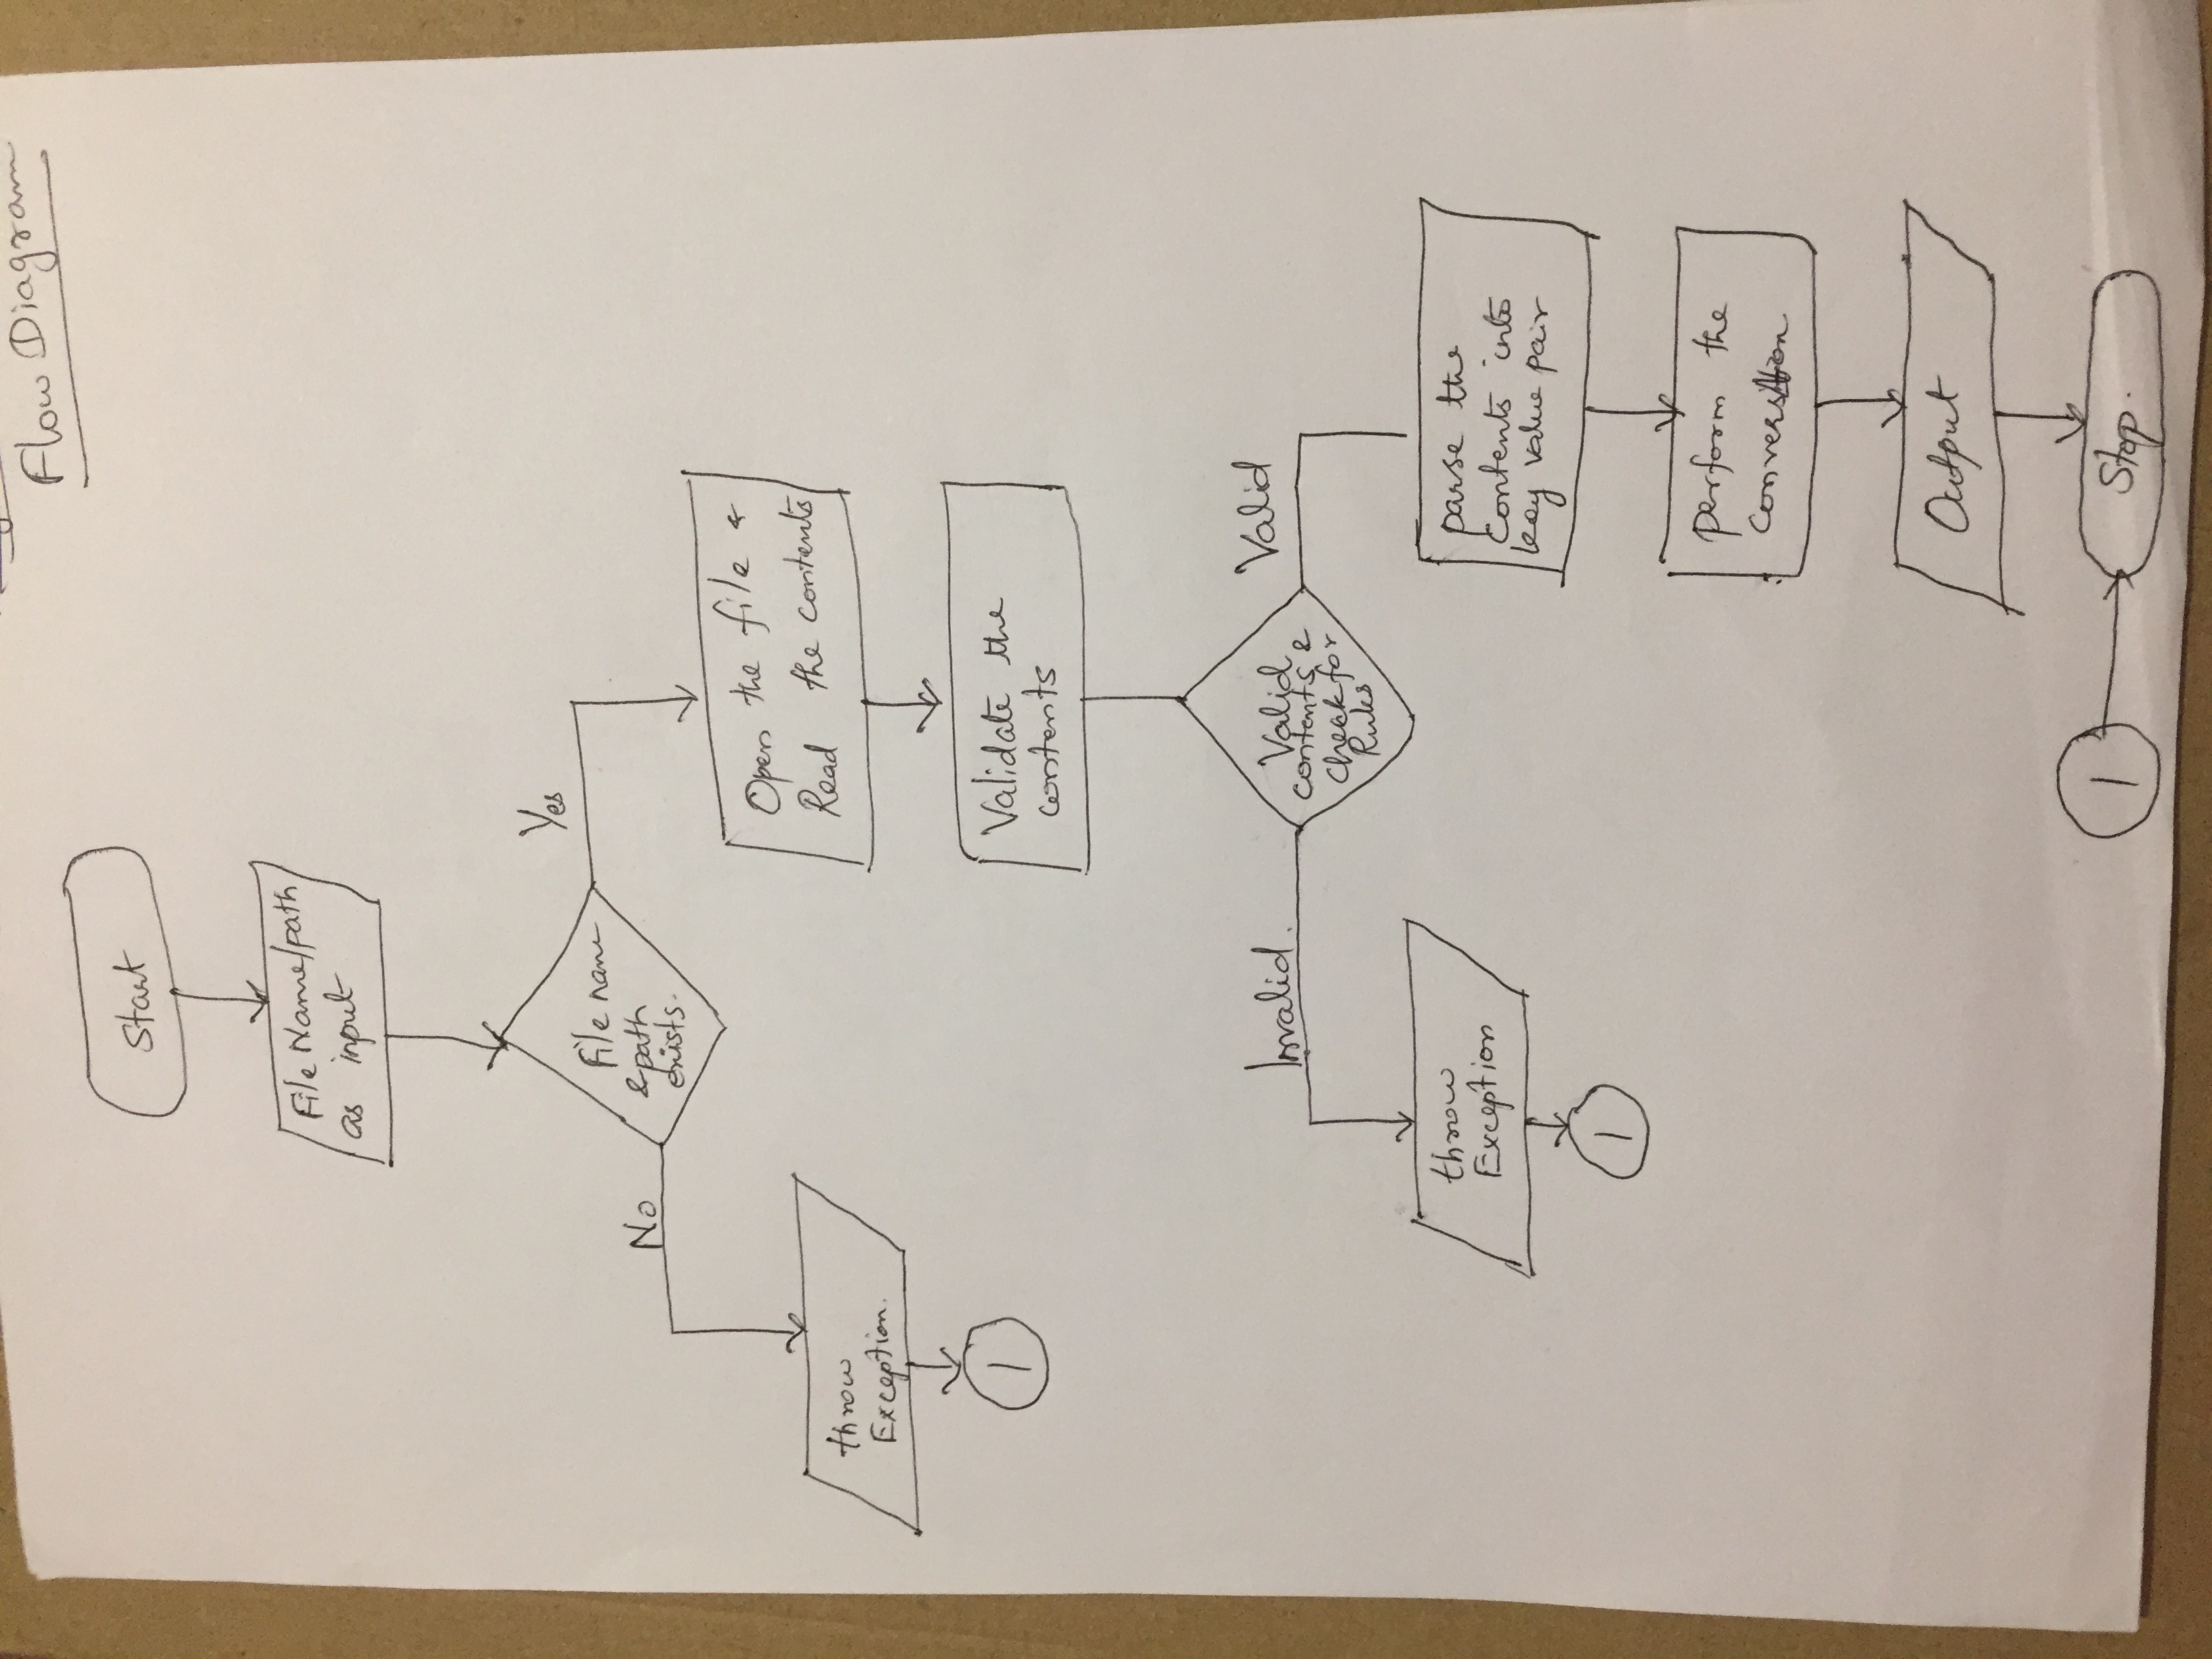 Flow Diagram
Start
File Name/path
as input
Yes
File name
& path
exists.
No
Open the file &
Read the contents
throw
Exception.
1
Validate the
contents
Invalid.
Valid
Valid
contents &
Check for
Rules
throw
Exception
1
parse the
Contents into
key value pair
perform the
Conversion
Output
1
Stop.